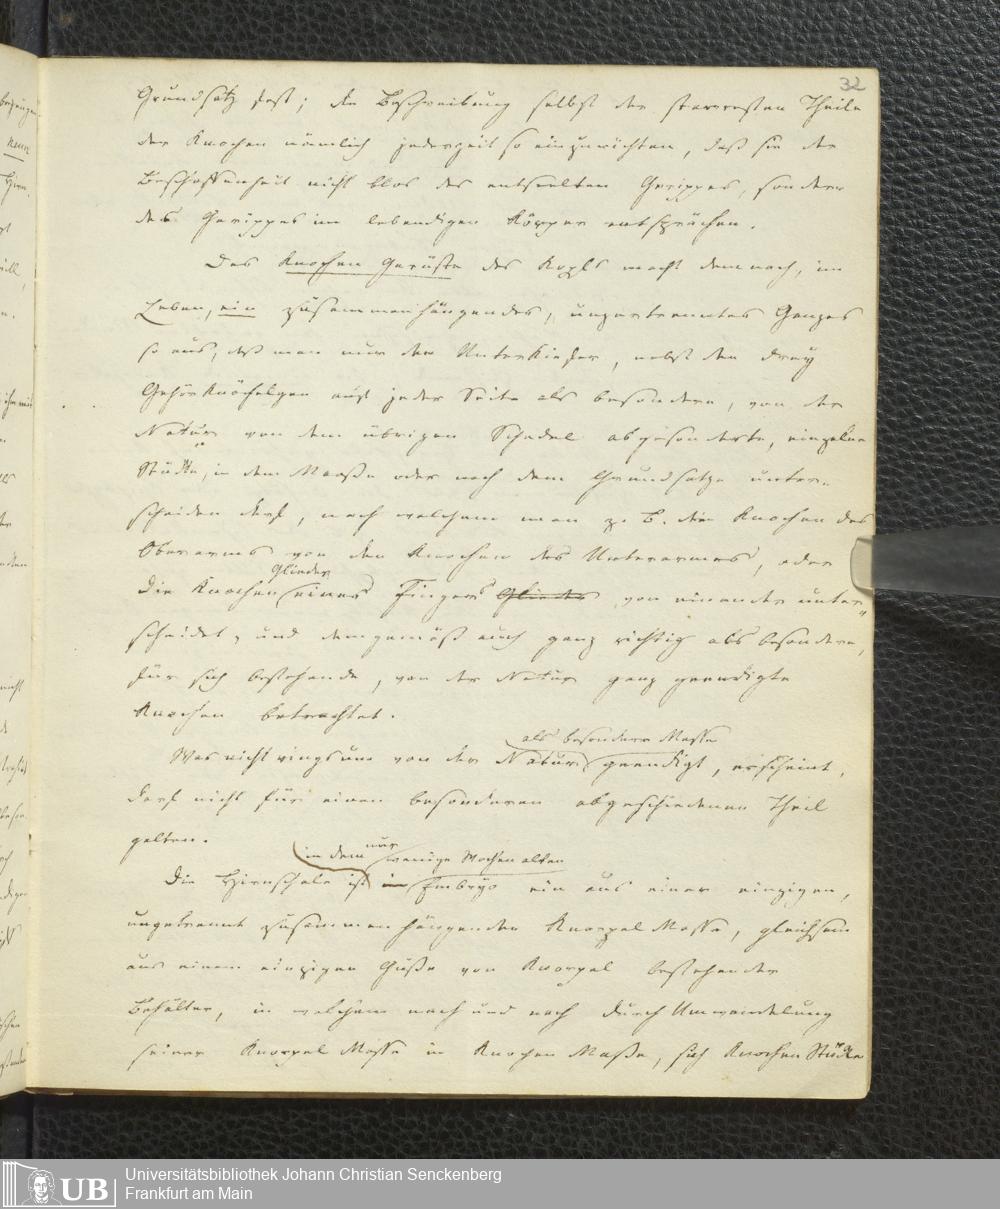 32
Grundsatz fest; die Beschreibung selbst der starresten Theile
der Knochen nämlich jederzeit so einzurichten, daß sie der
Beschaffenheit nicht blos des entseelten Gerippes, sondern
des Gerippes im lebendigen Körper entsprächen.
Das Knochen Gerüste des Kopfs macht demnach, im
Leben, ein zusammenhängendes, unzertrenntes Ganzes
so aus, daß man nur den Unterkiefer, nebst den drey
Gehörknöchelgen auf jeder Seite als besondere, von der
Natur von dem übrigen Schedel abgesonderte, einzelne
Stücke, in dem Maaße oder nach dem Grundsatze unter-
scheiden darf, nach welchem man z. B. die Knochen des
Oberarms von den Knochen des Unterarmes, oder
Glieder
die Knochen eines Fingers Glieder von einander unter-
scheidet, und demgemäß auch ganz richtig als besondere,
für sich bestehende, von der Natur ganz geendigte
Knochen betrachtet.
als besondere Masse
Was nicht ringsum von der Natur geendigt, erscheint,
darf nicht für einen besonderen abgeschiedenen Theil
gelten.
in dem nur wenige Wochen alten
Die Hirnschale ist im Embryo ein aus einer einzigen,
ungetrennt zusammenhängenden Knorpel Masse, gleichsam
aus einem einzigen Guße von Knorpel bestehender
Behälter, in welchem nach und nach durch Umwandelung
seiner Knorpel Masse in Knochen Maße, sich Knochen Stücke
UB
Universitätsbibliothek Johann Christian Senckenberg
Frankfurt am Main